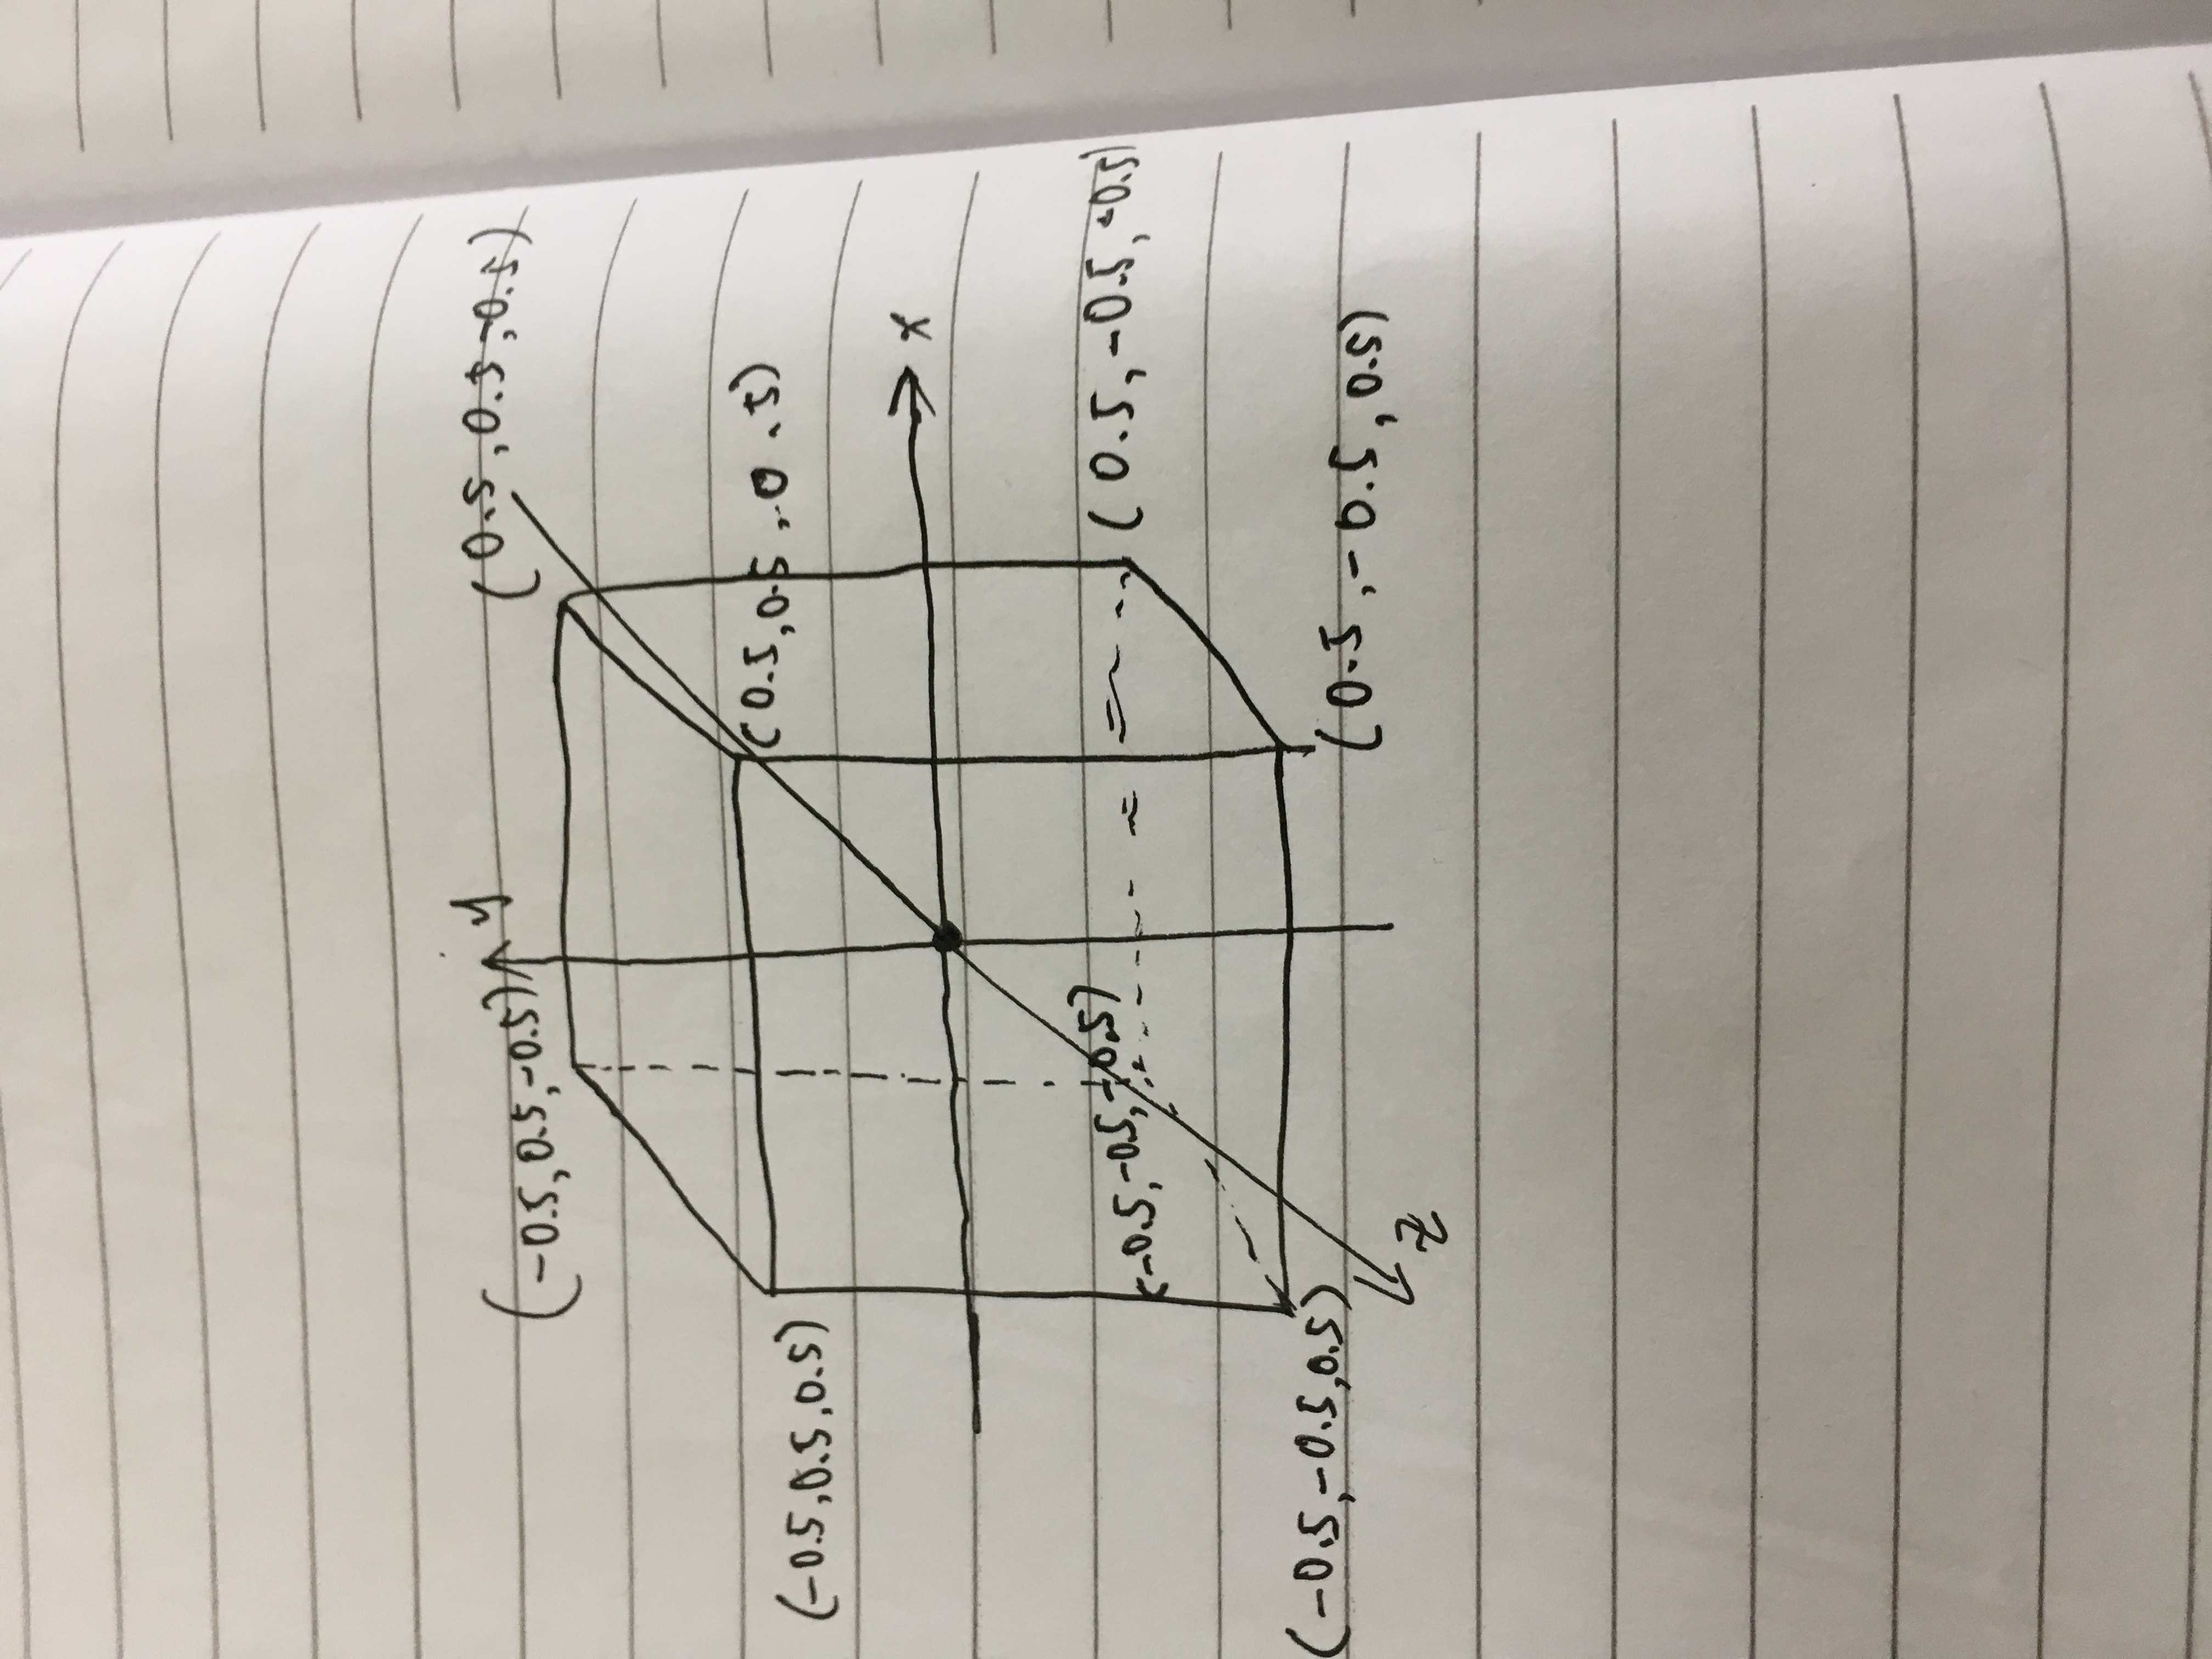 y
(0.5, 0.5, -0.5)
(-0.5, 0.5, -0.5)
(0.5, 0.5, -0.5)
(-0.5, 0.5, 0.5)
x
(-0.5, -0.5, -0.5)
(0.5, -0.5, -0.5)
(-0.5, -0.5, 0.5)
(0.5, -0.5, 0.5)
z